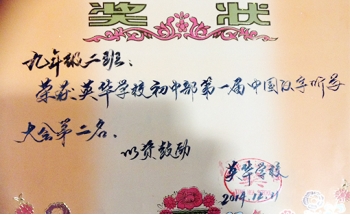 奖状
九年级二班：
荣获英华学校初中部第一届中国汉字听写
大会第二名。
以资鼓励
英华学校
2014.12.11